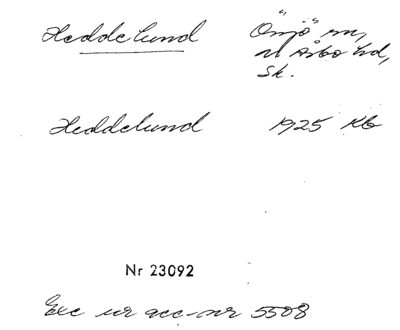 Heddelund Önnö sn,
N Åsbo hd,
Sk.
Heddelund 1925 Kb
Nr 23092
Exc ur acc-nr 5508